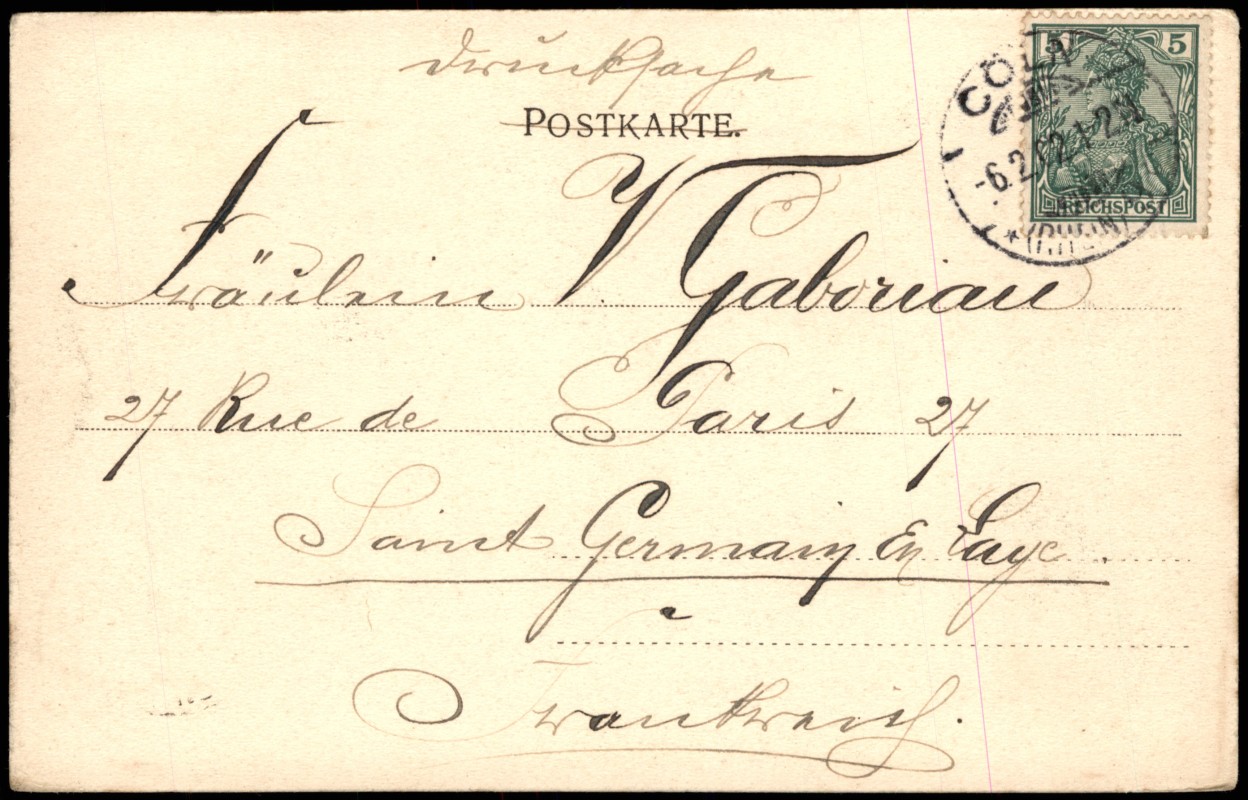 Drucksache
POSTKARTE.
5 5
REICHSPOST
CÖLN
-6.2.02.1-2N
* (RHEIN)
Fräulein V Gaboriau
27 Rue de Paris 27
Saint Germain En Laye.
Frankreich.